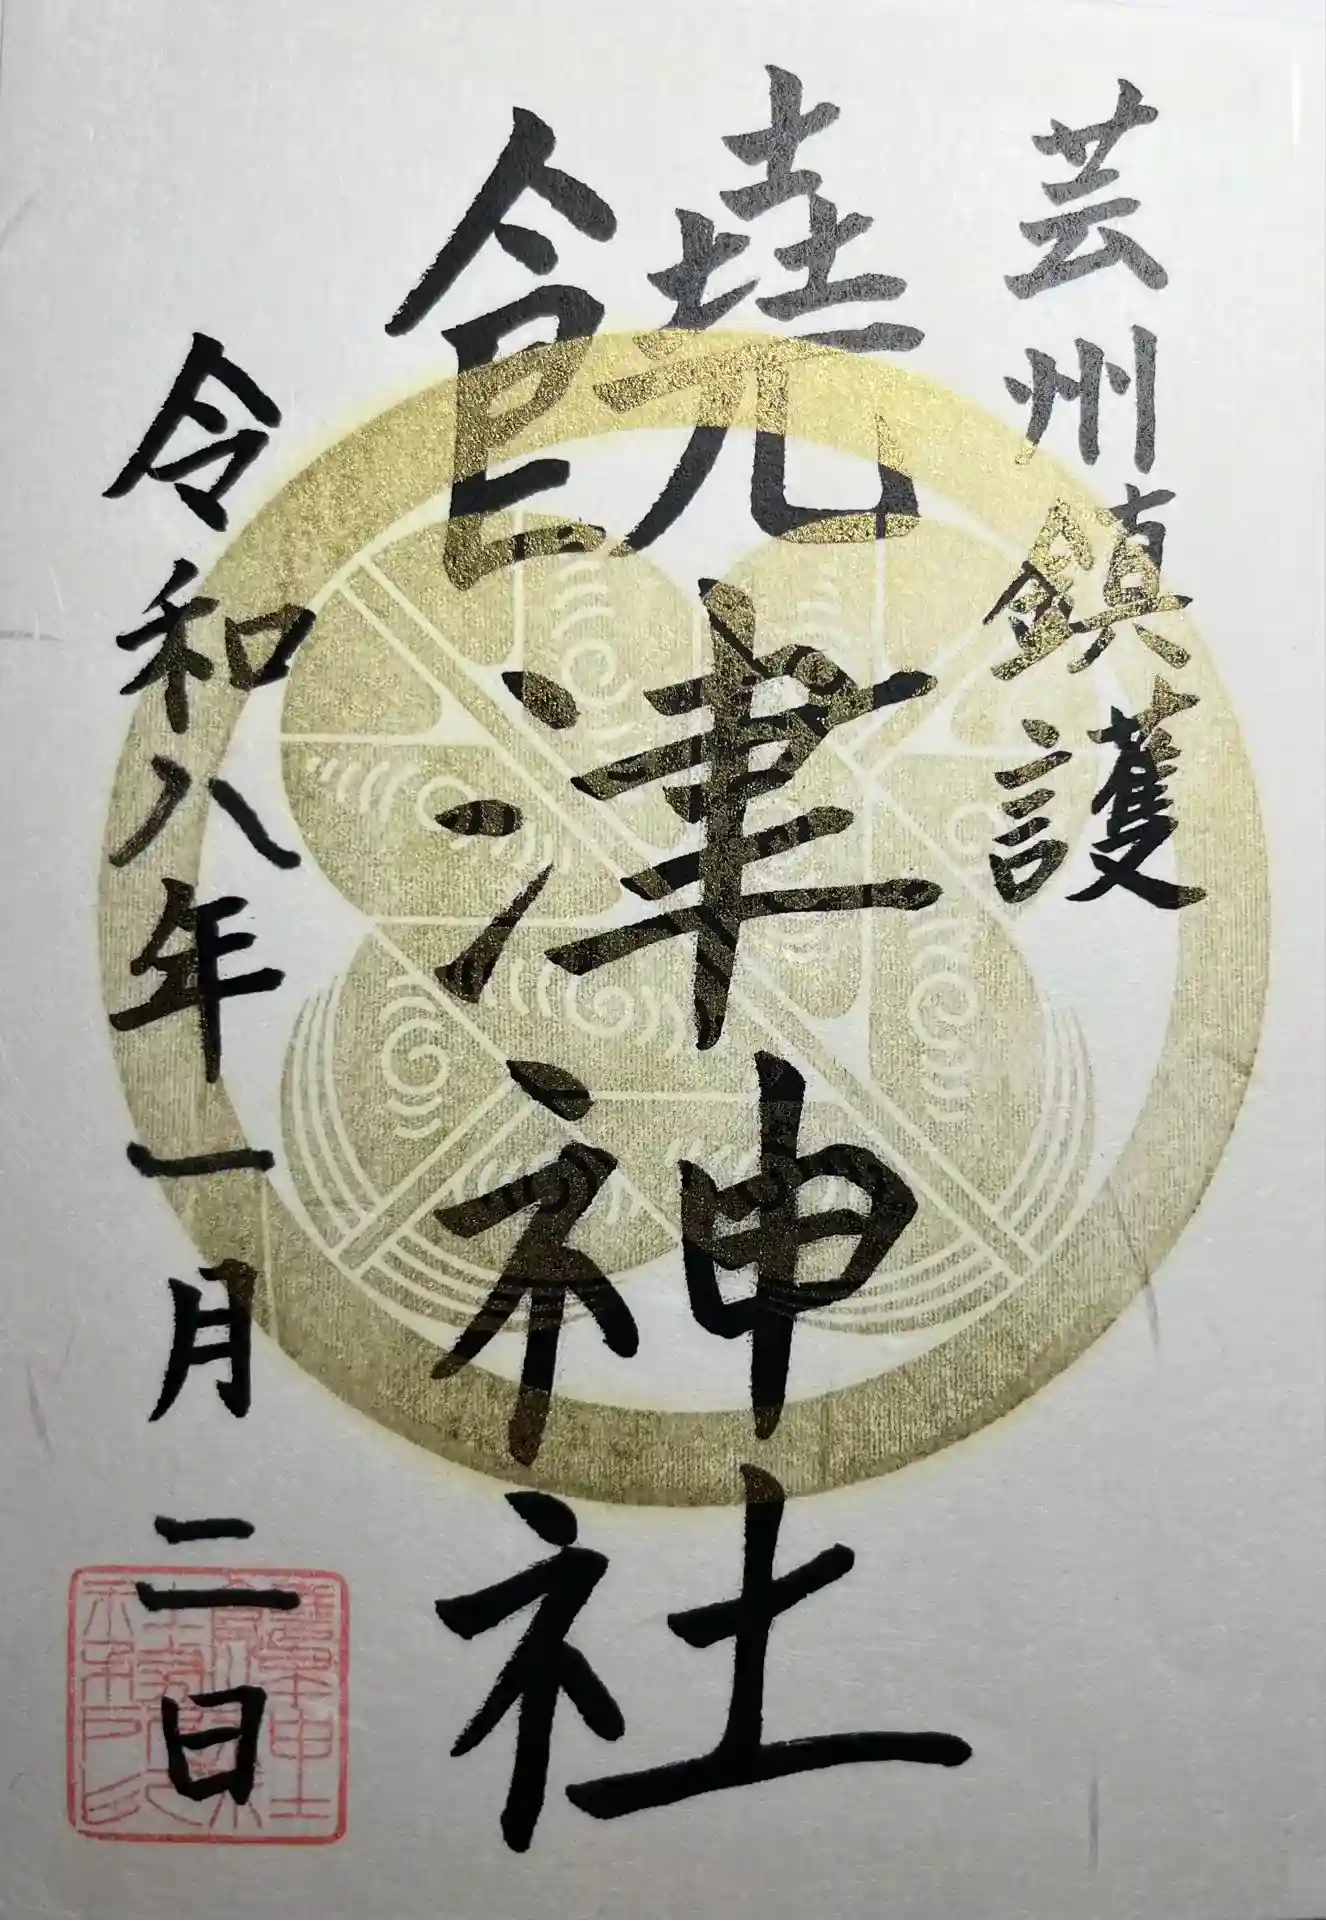 芸州鎮護
饒津神社
令和八年一月二日